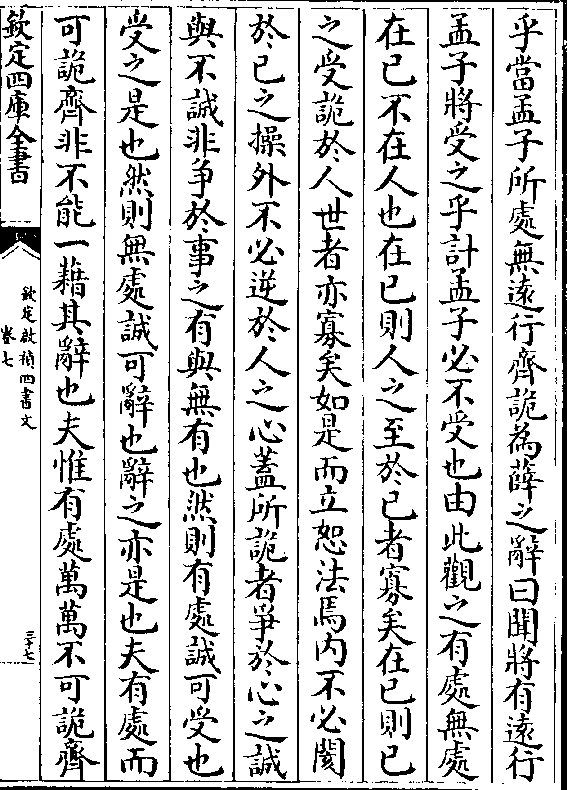 乎當孟子所處無遠行齊詭為薛之辭曰聞將有遠行
孟子將受之乎計孟子必不受也由此觀之有處無處
在已不在人也在已則人之至於已者寡矣在已則已
之受詭於人世者亦寡矣如是而立恕法焉内不必闋
於已之操外不必逆於人之心蓋所詭者爭於心之誠
與不誠非爭於事之有與無有也然則有處誠可受也
受之是也然則無處誠可辭也辭之亦是也夫有處而
可詭齊非不能一藉其辭也夫惟有處萬萬不可詭齊
欽定四庫全書
欽定啟禎四書文
卷七
三十七